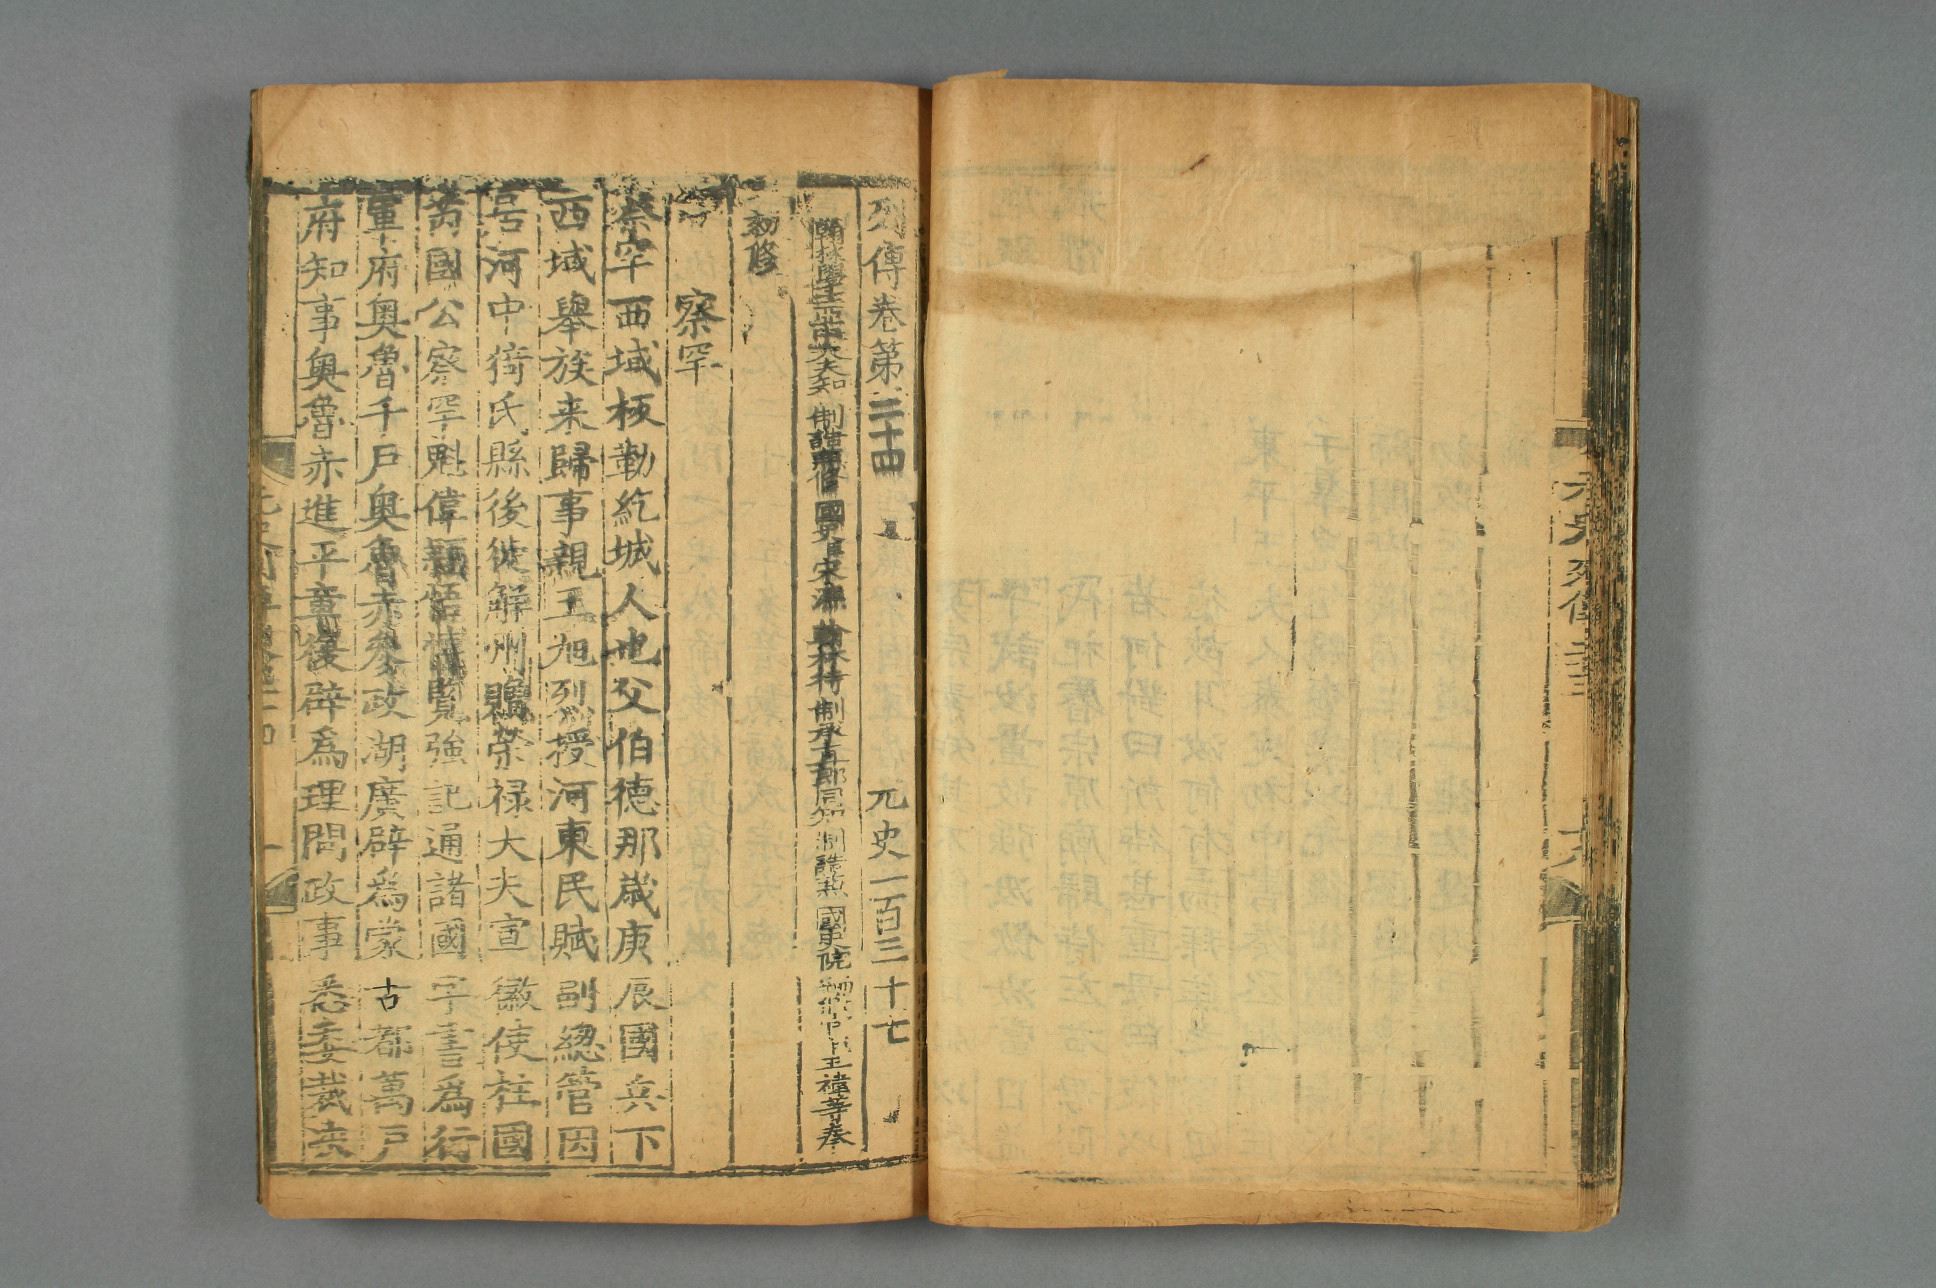 元史列傳二十三
十八
列傳卷第二十四 元史一百三十七
翰林學士亞中大夫知 制誥兼修 國史臣宋濂 翰林待 制承直郎同知 制誥兼 國史院編修官臣王禕等奉
敕修
察罕
察罕西域板勒紇城人也父伯德那歲庚辰國兵下
西域舉族來歸事親王旭烈授河東民賦副總管因
居河中猗氏縣後徙解州贈榮祿大夫宣徽使柱國
芮國公察罕魁偉穎悟博覽強記通諸國字書爲行
軍府奧魯千戶奧魯赤參政湖廣辟爲蒙古都萬戶
府知事奧魯赤進平章復辟爲理問政事悉委裁決
元史列傳卷二十四
一